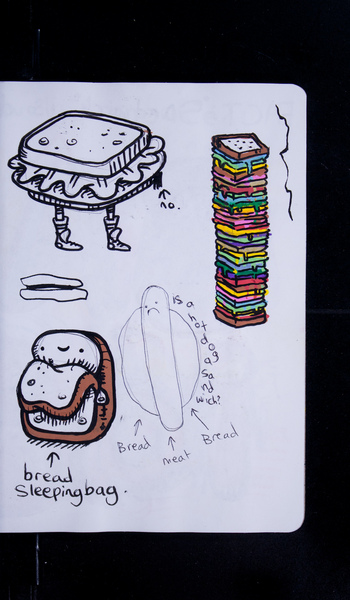 no.
is a hot dog a sandwich?
Bread
meat
Bread
bread
Sleepingbag.